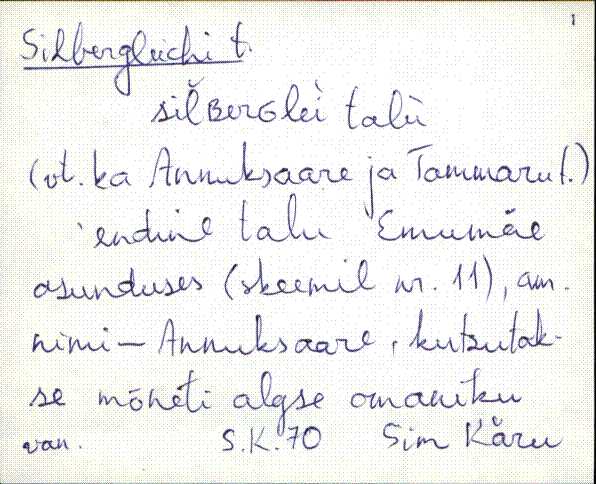 1
Silbergleichi t.
silBerGlei talu
(vt. ka Annuksaare ja Tammaru t.)
endine talu Emumäe
asunduses (skeemil nr. 11), am.
nimi – Annuksaare, kutsutak-
se mõneti algse omaniku
van. S.K. 70 Sim Käru